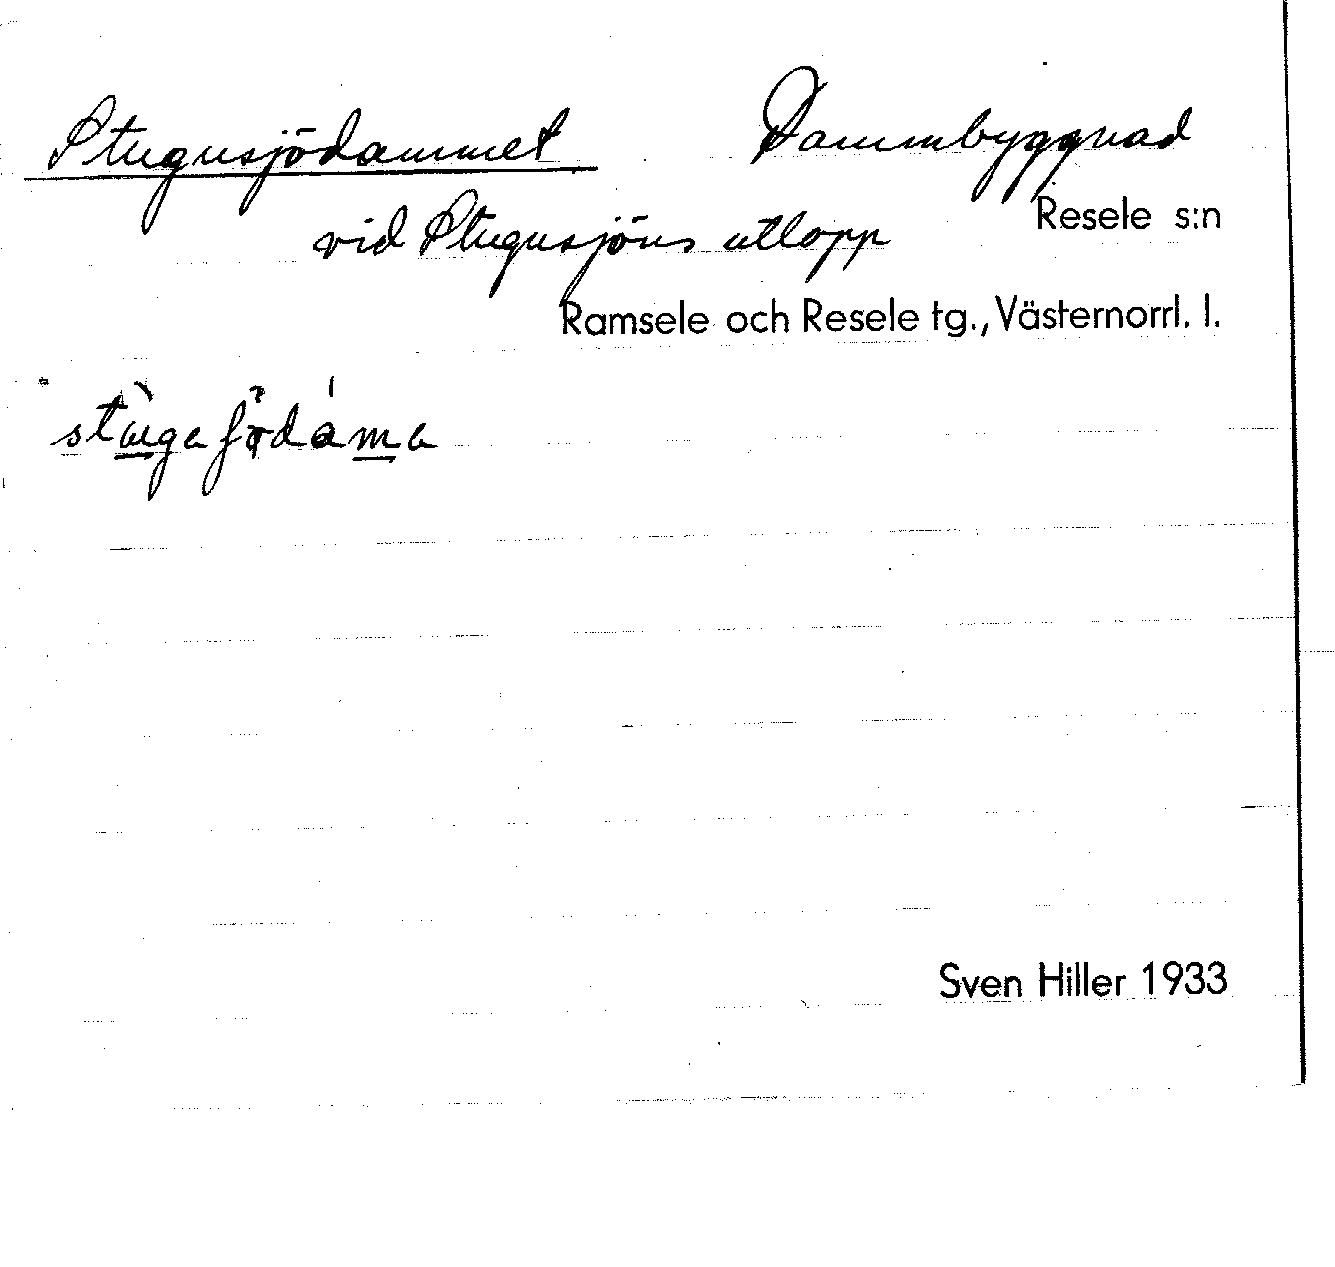 Stugusjödammet Dammbyggnad
vid Stugusjöns utlopp Resele s:n
Ramsele och Resele tg., Västernorrl. l.
Sven Hiller 1933